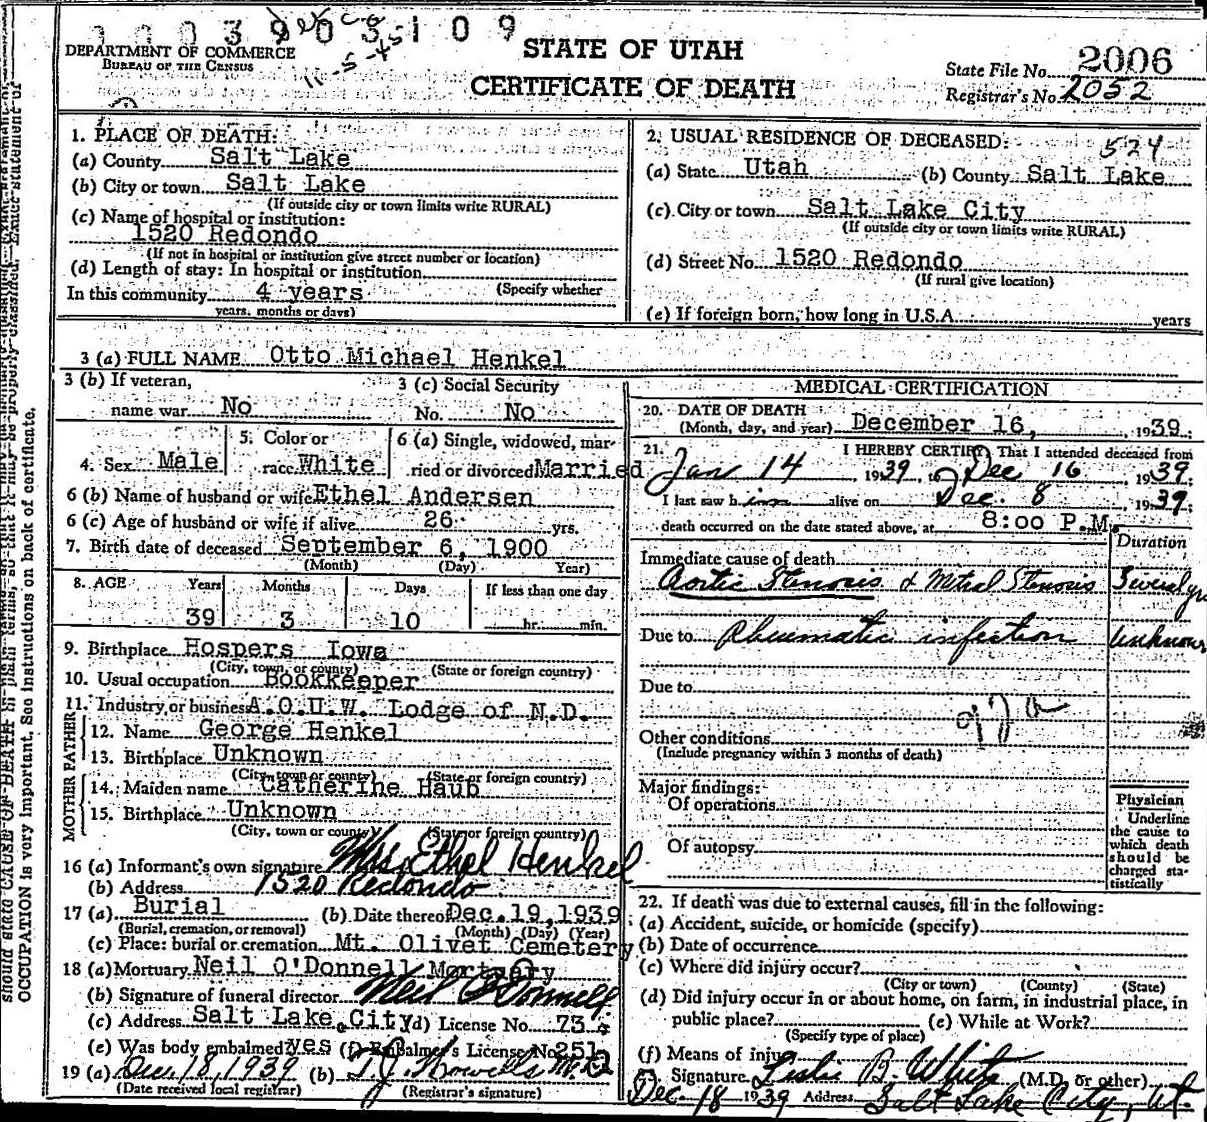 1003903109
11-5-45
DEPARTMENT OF COMMERCE
BUREAU OF THE CENSUS
STATE OF UTAH
CERTIFICATE OF DEATH
State File No. 2006
Registrar's No. 2052
1. PLACE OF DEATH:
(a) County Salt Lake
(b) City or town Salt Lake
(If outside city or town limits write RURAL)
(c) Name of hospital or institution:
1520 Redondo
(If not in hospital or institution give street number or location)
(d) Length of stay: In hospital or institution
(Specify whether
In this community 4 years
years, months or days)
2. USUAL RESIDENCE OF DECEASED:
524
(a) State Utah (b) County Salt Lake
(c) City or town Salt Lake City
(If outside city or town limits write RURAL)
(d) Street No. 1520 Redondo
(If rural give location)
(e) If foreign born, how long in U.S.A. years
3 (a) FULL NAME Otto Michael Henkel
3 (b) If veteran, name war No
3 (c) Social Security No. No
4. Sex Male
5. Color or race White
6 (a) Single, widowed, married or divorced Married
6 (b) Name of husband or wife Ethel Andersen
6 (c) Age of husband or wife if alive 26 yrs.
7. Birth date of deceased September 6, 1900
(Month) (Day) Year)
8. AGE Years Months Days If less than one day
39 3 10 hr. min.
9. Birthplace Hospers Iowa
(City, town, or county) (State or foreign country)
10. Usual occupation Bookkeeper
11. Industry or business A.O.U.W. Lodge of N.D.
FATHER
12. Name George Henkel
13. Birthplace Unknown
(City, town or county) (State or foreign country)
MOTHER
14. Maiden name Catherine Haub
15. Birthplace Unknown
(City, town or county) (State or foreign country)
16 (a) Informant's own signature Mrs. Ethel Henkel
(b) Address 1520 Redondo
17 (a) Burial (b) Date thereof Dec. 19, 1939
(Burial, cremation, or removal) (Month) (Day) (Year)
(c) Place: burial or cremation Mt. Olivet Cemetery
18 (a) Mortuary Neil O'Donnell Mortuary
(b) Signature of funeral director Neil O'Donnell
(c) Address Salt Lake City (d) License No. 73
(e) Was body embalmed? yes (f) Embalmer's License No. 251
19 (a) Dec. 18, 1939 (b) T.J. Howells M.D.
(Date received local registrar) (Registrar's signature)
MEDICAL CERTIFICATION
20. DATE OF DEATH
(Month, day, and year) December 16, 1939
21. I HEREBY CERTIFY That I attended deceased from
Jan 14 1939, to Dec 16, 1939;
I last saw him alive on Dec. 8, 1939;
death occurred on the date stated above, at 8:00 P.M.
Duration
Immediate cause of death
Aortic Stenosis & Mitral Stenosis Several yrs
Due to Rheumatic infection Unknown
Due to
Other conditions
(Include pregnancy within 3 months of death)
Major findings:
Of operations
Of autopsy
Physician
Underline
the cause to
which death
should be
charged sta-
tistically
22. If death was due to external causes, fill in the following:
(a) Accident, suicide, or homicide (specify)
(b) Date of occurrence
(c) Where did injury occur?
(City or town) (County) (State)
(d) Did injury occur in or about home, on farm, in industrial place, in
public place? (e) While at Work?
(Specify type of place)
(f) Means of injury
Signature Leslie B. White (M.D. or other)
Dec. 18 1939 Address Salt Lake City, Ut.
should state CAUSE OF DEATH in plain terms, so that it may be properly classified. Exact statement of
OCCUPATION is very important. See instructions on back of certificate.